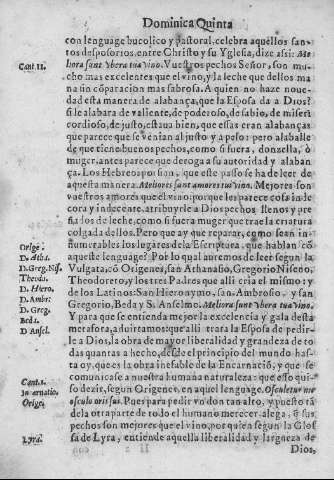 Dominica Quinta
con lenguage bucolico y pastoral, celebra aquellos san-
tos desposorios entre Christo y su Yglesia, dize assi: Me
Cant. 1. liora sunt vbera tua vino. Vuestros pechos Señor, son mu-
cho mas excelentes que el vino, y la leche que dellos ma
na sin cõparacion mas sabrosa. A quien no haze noue-
dad esta manera de alabança, que la Esposa da a Dios?
si le alabara de valiente, de poderoso, de sabio, de miseri
cordioso, de justo, estaua bien, que essas eran alabanças
que parece que se venian al justo y a peso: pero alaballe
de que tiene buenos pechos, como si fuera, donzella, ò
muger, antes parece que deroga a su autoridad y alaban
ça. Los Hebreos ponian, que este passo se ha de leer de
aquesta manera. Meliores sunt amores tui vino. Mejores son
vuestros amores que el vino: porque les parece cosa in de
cora y indecente, atribuyrle a Dios pechos llenos y pre
ñados de leche, como si fuera muger que trae la criatura
colgada dellos. Pero que ay que reparar, como sean in-
Orige. ñumerables los lugares de la Escriptura, que hablan cõ
D. Atha. aqueste lenguage? Por lo qual auremos de leer segun la
D. Greg. Nis. Vulgata, cõ Origenes, san Athanasio, Gregorio Niseno,
Theodo. Theodoreto, y los tres Padres que alli cria el mismo: y
D. Hiero. de los Latinos: San Hieronymo, san Ambrosio, y san
D. Ambr. Gregorio, Beda y S. Anselmo. Meliora sunt vbera tua vino.
D. Greg. Y para que se entienda mejor la excelencia y gala desta
Beda. metafora, aduirtamos: que alli trata la Esposa de pedir-
D Ansel. le a Dios, la obra de mayor liberalidad y grandeza de to
das quantas a hecho, desde el principio del mundo has-
ta oy, que es la obra inefable de la Encarnaciõ, y que se
comunicasse a nuestra humana naturaleza: que esso qui-
Cant. 1. so dezir, segun Origenes, en aquel lenguage. Osculetur me
In eruatio. osculo oris sui. Pues para pedir vn don tan alto, y puesto tã
Orige. de la otra parte de todo el humano merecer alega, q̃ sus
pechos son mejores que el vino, por quien segun la Glos
Lyra. sa de Lyra, entiende aquella liberalidad y largueza de
Dios,